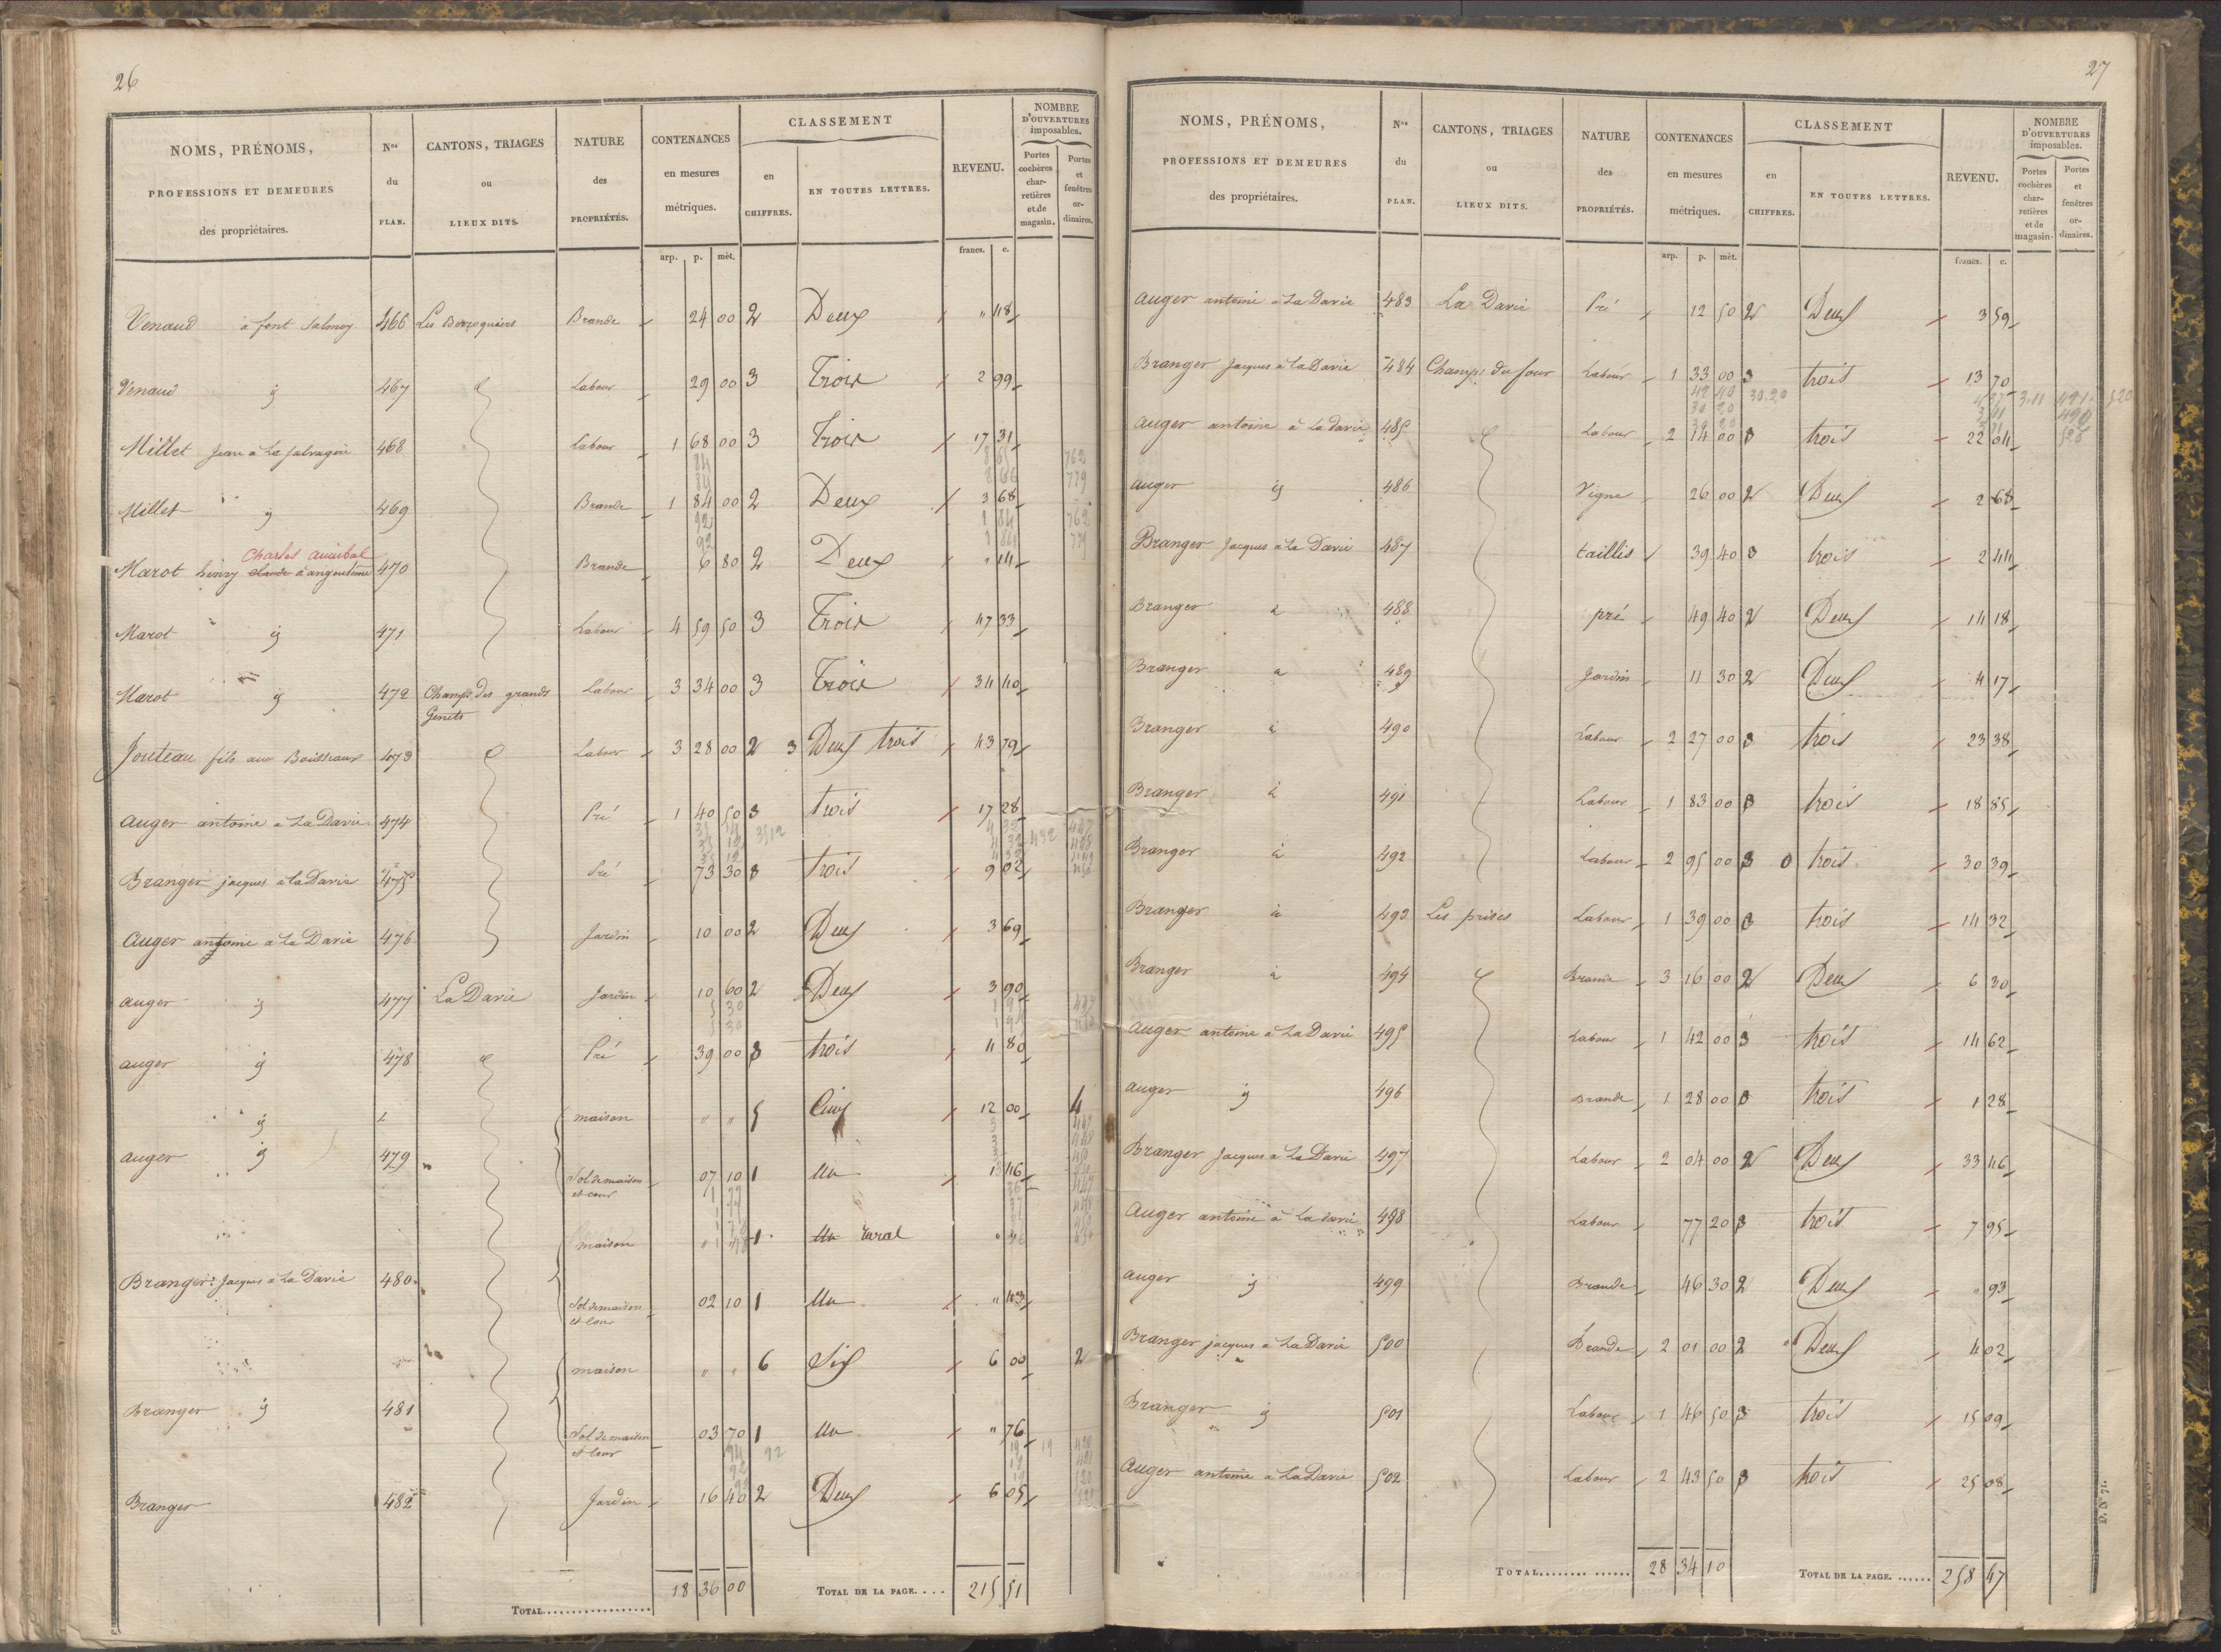 26
NOMS, PRÉNOMS, PROFESSIONS ET DEMEURES des propriétaires. Nos du PLAN. CANTONS, TRIAGES ou LIEUX DITS. NATURE des PROPRIÉTÉS. CONTENANCES en mesures métriques. CLASSEMENT en CHIFFRES. EN TOUTES LETTRES. REVENU. NOMBRE D'OUVERTURES imposables. Portes cochères charretières et de magasin. Portes et fenêtres ordinaires.
arp. p. mèt. francs. c.
Venaud à font Salmoy 466 Brande 24 00 2 Deux " 48
Venaud ij 467 Labour 29 00 3 Trois 2 99
Millet Jean à 468 Labour 1 68 00 3 Trois 17 31
Millet ij 469 Brande 1 84 00 2 Deux 3 68
Charles annibal
Marot henry claude à angoulême 470 Brande 6 80 2 Deux " 14
Marot ij 471 Labour 4 59 50 3 Trois 47 33
Marot ij 472 Champs des grands Genets Labour 3 34 00 3 Trois 34 40
Jouteau fils aux Boisseaux 473 Labour 3 28 00 2 3 Deux trois 43 79
auger antoine a La Davie 474 Pré 1 40 50 3 trois 17 28
Branger jacques a la Davie 475 Pré 73 30 3 trois 9 02
Auger antoine a la Davie 476 Jardin 10 00 2 Deux 3 69
auger ij 477 La Davie Jardin 10 60 2 Deux 3 90
auger ij 478 Pré 39 00 3 trois 4 80
ij maison " " 5 Cinq 12 00 4
auger ij 479 Sol de maison et cour 07 10 1 Un 1 46
maison 1 Un rural
Branger Jacques a La Davie 480 Sol de maison et cour 02 10 1 Un " 43
maison " " 6 Six 6 00 2
Branger ij 481 Sol de maison et cour 03 70 1 Un " 76
Branger 482 Jardin 16 40 2 Deux 6 05
TOTAL 18 36 00 TOTAL DE LA PAGE 215 51
27
NOMS, PRÉNOMS, PROFESSIONS ET DEMEURES des propriétaires. Nos du PLAN. CANTONS, TRIAGES ou LIEUX DITS. NATURE des PROPRIÉTÉS. CONTENANCES en mesures métriques. CLASSEMENT en CHIFFRES. EN TOUTES LETTRES. REVENU. NOMBRE D'OUVERTURES imposables. Portes cochères charretières et de magasin. Portes et fenêtres ordinaires.
arp. p. mèt. francs. c.
auger antoine a La Davie 483 La Davie Pré 12 50 2 Deux 3 59
Branger Jacques a la Davie 484 Champs du four Labour 1 33 00 3 trois 13 70
auger antoine a la davie 485 Labour 2 14 00 3 trois 22 04
auger ij 486 Vigne 26 00 2 Deux 2 68
Branger Jacques a La Davie 487 taillis 39 40 3 trois 2 44
Branger 488 pré 49 40 2 Deux 14 18
Branger 489 Jardin 11 30 2 Deux 4 17
Branger 490 Labour 2 27 00 3 trois 23 38
Branger 491 Labour 1 83 00 3 trois 18 85
Branger 492 Labour 2 95 00 3 0 trois 30 39
Branger 493 Les prises Labour 1 39 00 3 trois 14 32
Branger 494 Brande 3 16 00 2 Deux 6 30
auger antoine a La Davie 495 Labour 1 42 00 3 trois 14 62
auger ij 496 Brande 1 28 00 3 trois 1 28
Branger Jacques a La Davie 497 Labour 2 04 00 2 Deux 33 46
auger antoine a la davie 498 Labour 77 20 3 trois 7 95
auger ij 499 Brande 46 30 2 Deux " 93
Branger jacques a La Davie 500 Brande 2 01 00 2 Deux 4 02
Branger ij 501 Labour 1 46 50 3 trois 15 09
auger antoine a La Davie 502 Labour 2 43 50 3 trois 25 08
TOTAL 28 34 10 TOTAL DE LA PAGE 258 47
D. N° 71.